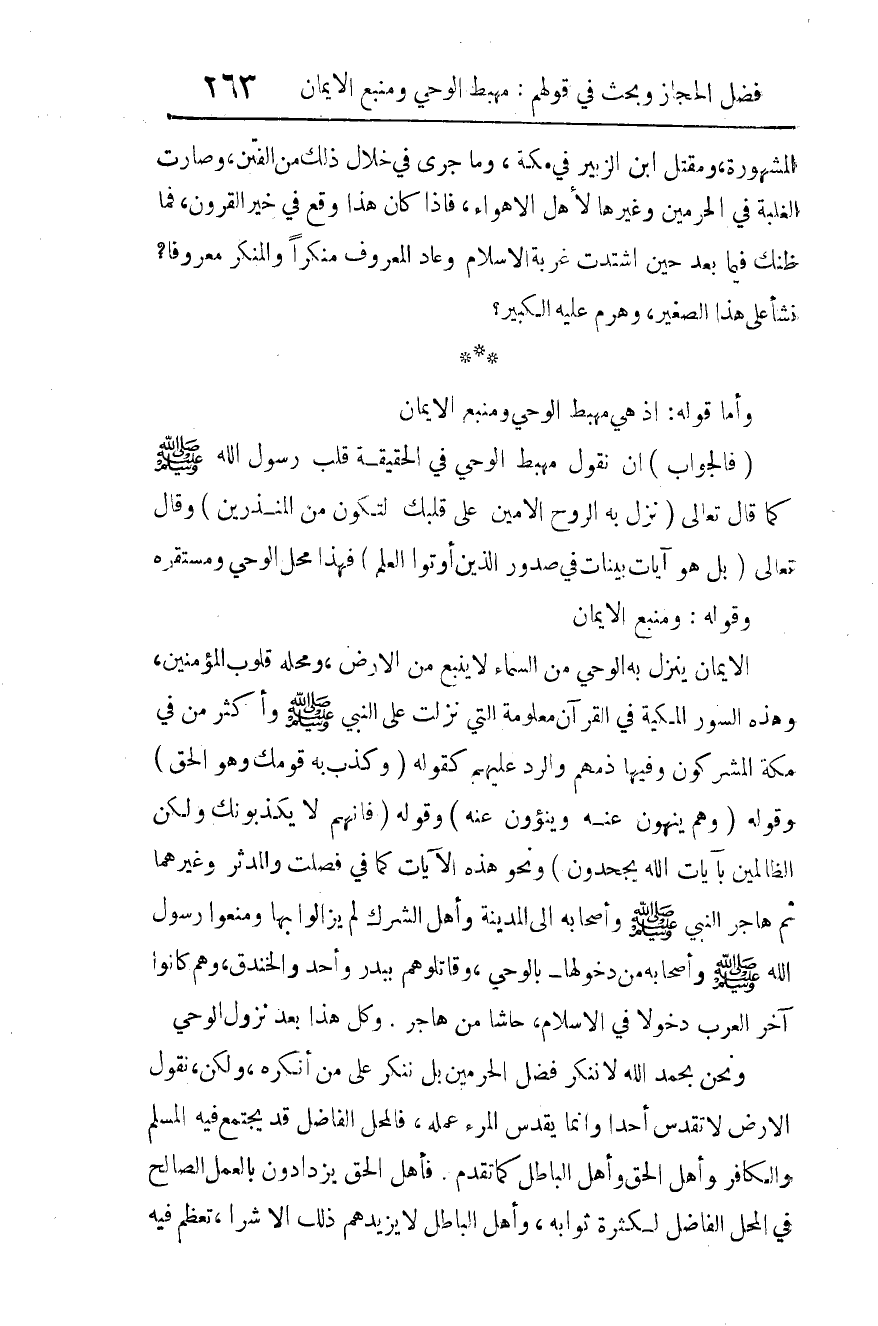 فضل الحجاز وبحث في قولهم : مهبط الوحي ومنبع الايمان ٢٦٣
المشهورة، ومقتل ابن الزبير في مكة ، وما جرى في خلال ذلك من الفتن، وصارت
الغلبة في الحرمين وغيرها لأهل الاهواء ، فاذا كان هذا وقع في خير القرون، فما
ظنك فيما بعد حين اشتدت غربة الاسلام وعاد المعروف منكراً والمنكر معروفا؟
نشأ على هذا الصغير، وهرم عليه الكبير؟
***
وأما قوله: اذ هي مهبط الوحي ومنبع الايمان
( فالجواب ) ان نقول مهبط الوحي في الحقيقة قلب رسول الله ﷺ
كما قال تعالى ( نزل به الروح الامين على قلبك لتكون من المنذرين ) وقال
تعالى ( بل هو آيات بينات في صدور الذين أوتوا العلم ) فهذا محل الوحي ومستقره
وقوله : ومنبع الايمان
الايمان ينزل به الوحي من السماء لا ينبع من الارض ، ومحله قلوب المؤمنين،
وهذه السور المكية في القرآن معلومة التي نزلت على النبي ﷺ وأكثر من في
مكة المشركون وفيها ذمهم والرد عليهم كقوله ( وكذب به قومك وهو الحق )
وقوله ( وهم ينهون عنه وينؤون عنه ) وقوله ( فانهم لا يكذبونك ولكن
الظالمين بآيات الله يجحدون ) ونحو هذه الآيات كما في فصلت والمدثر وغيرهما
ثم هاجر النبي ﷺ وأصحابه الى المدينة وأهل الشرك لم يزالوا بها ومنعوا رسول
الله ﷺ وأصحابه من دخولها ـ بالوحي ، وقاتلوهم ببدر وأحد والخندق، وهم كانوا
آخر العرب دخولا في الاسلام، حاشا من هاجر . وكل هذا بعد نزول الوحي
ونحن بحمد الله لا ننكر فضل الحرمين بل ننكر على من أنكره ، ولكن، نقول
الارض لا تقدس أحدا وانما يقدس المرء عمله ، فالمحل الفاضل قد يجتمع فيه المسلم
والكافر وأهل الحق وأهل الباطل كما تقدم . فأهل الحق يزدادون بالعمل الصالح
في المحل الفاضل لكثرة ثوابه ، وأهل الباطل لا يزيدهم ذلك الا شرا ، تعظم فيه